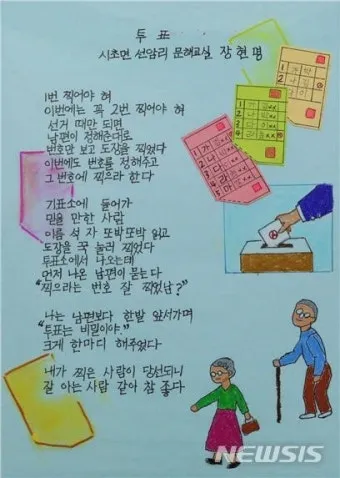 투 표
시초면 선암리 문해교실 장현명
1번 찍어야 혀
이번에는 꼭 2번 찍어야 혀
선거 때만 되면
남편이 정해준대로
번호만 보고 도장을 찍었다
이번에도 번호를 정해주고
그 번호에 찍으라 한다
기표소에 들어가
믿을 만한 사람
이름 석 자 또박또박 읽고
도장을 꾹 눌러 찍었다
투표소에서 나오는데
먼저 나온 남편이 묻는다
"찍으라는 번호 잘 찍었남?"
나는 남편보다 한발 앞서가며
"투표는 비밀이야."
크게 한마디 해주었다
내가 찍은 사람이 당선되니
잘 아는 사람 같아 참 좋다
NEWSIS